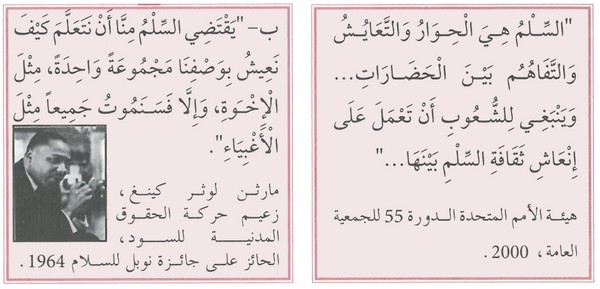 "السِّلْمُ هِيَ الْحِوَارُ وَالتَّعَايُشُ
وَالتَّفَاهُمُ بَيْنَ الْحَضَارَاتِ...
وَيَنْبَغِي لِلشُّعُوبِ أَنْ تَعْمَلَ عَلَى
إِنْعَاشِ ثَقَافَةِ السِّلْمِ بَيْنَهَا..."
هيئة الأمم المتحدة الدورة 55 للجمعية
العامة، 2000 .
ب- "يَقْتَضِي السِّلْمُ مِنَّا أَنْ نَتَعَلَّمَ كَيْفَ
نَعِيشُ بِوَصْفِنَا مَجْمُوعَةً وَاحِدَةً، مِثْلَ
الْإِخْوَةِ، وَإِلَّا فَسَنَمُوتُ جَمِيعاً مِثْلَ
الْأَغْبِيَاءِ".
مارثن لوثر كينغ،
زعيم حركة الحقوق
المدنية للسود،
الحائز على جائزة نوبل للسلام 1964 .